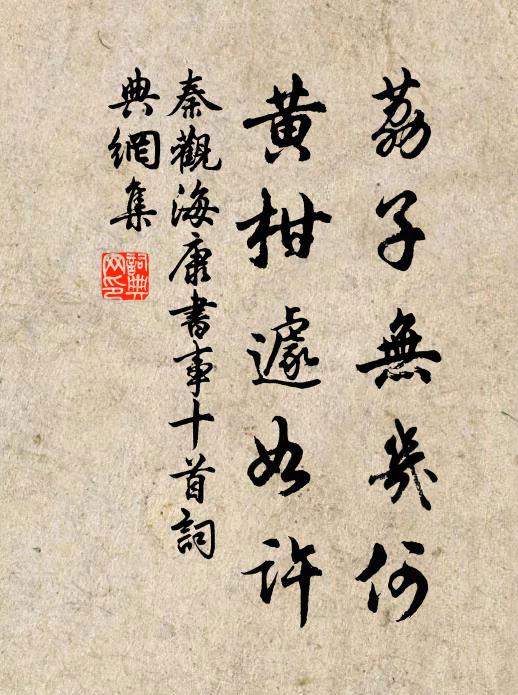 荔子無幾何
黃柑遽如許
秦觀海康書事十首詞
典網集
詞典
网印